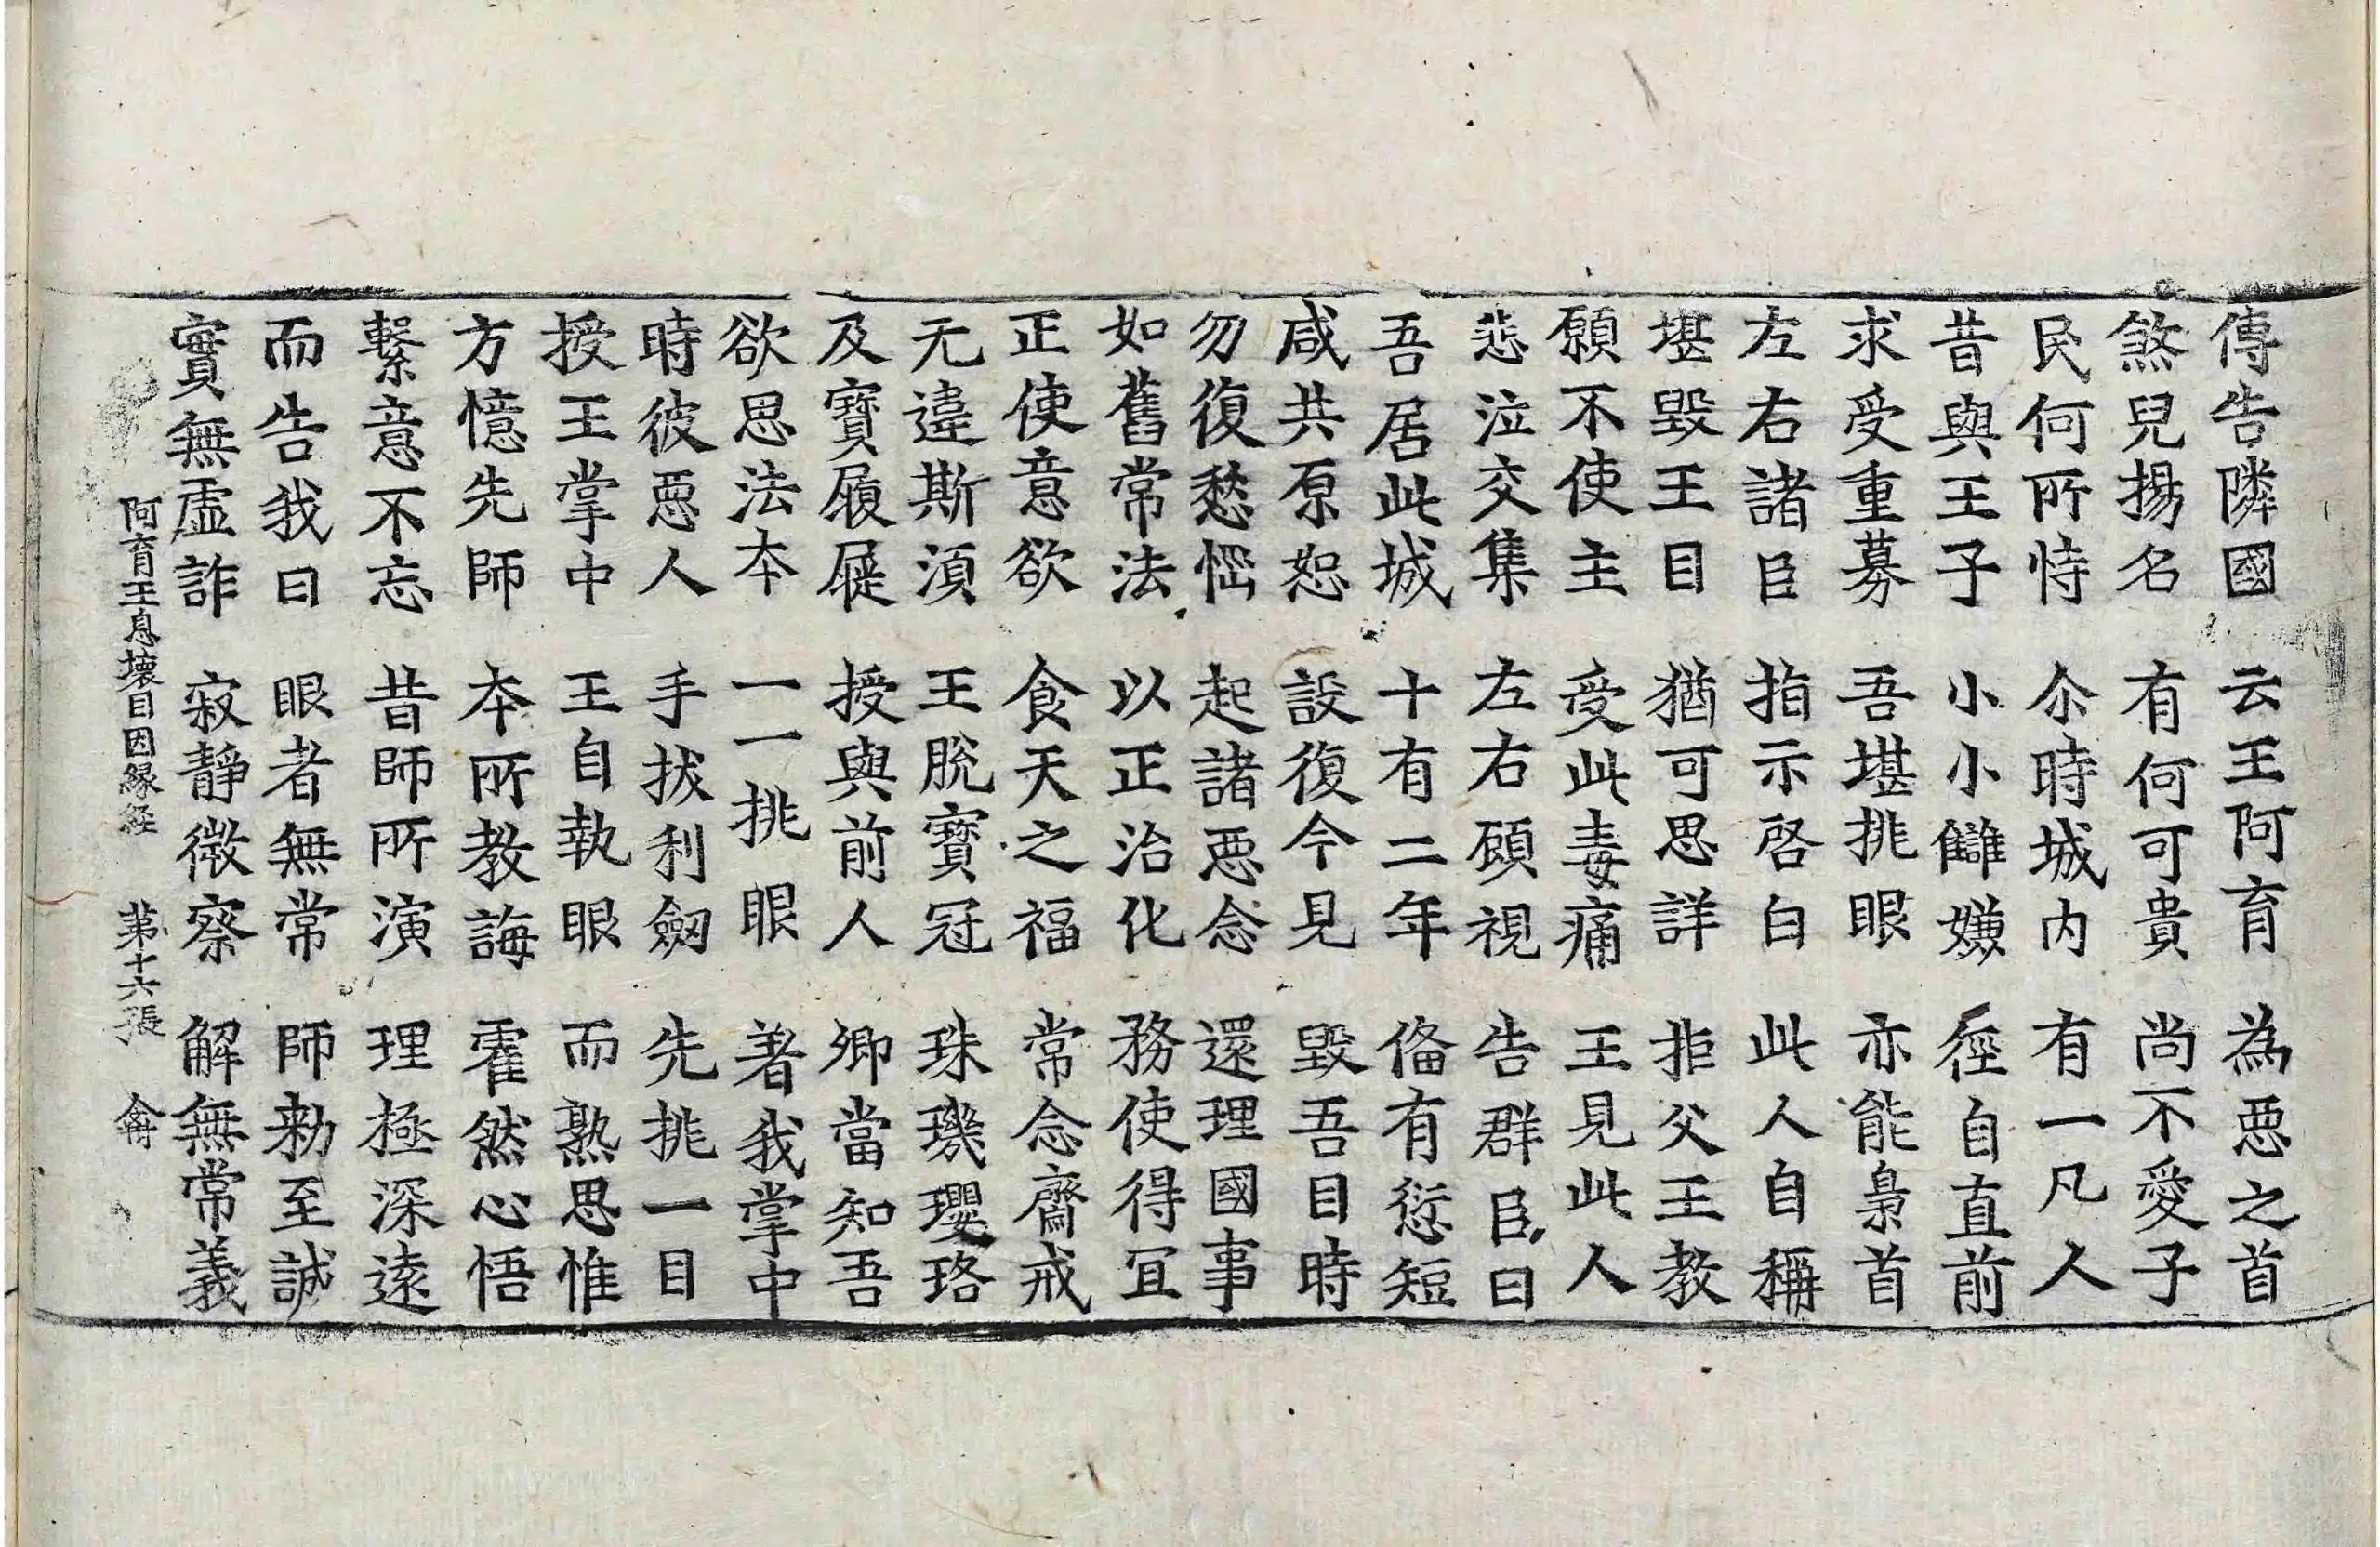 傳告隣國 云王阿育 為惡之首
煞兒揚名 有何可貴 尚不愛子
民何所恃 尒時城内 有一凡人
昔與王子 小小讎嫌 徑自直前
求受重募 吾堪挑眼 亦能梟首
左右諸臣 指示啓白 此人自稱
堪毀王目 猶可思詳 拒父王教
願不使主 受此毒痛 王見此人
悲泣交集 左右顧視 告群臣曰
吾居此城 十有二年 俻有愆短
咸共原恕 設復今見 毀吾目時
勿復愁惱 起諸惡念 還理國事
如舊常法 以正治化 務使得冝
正使意欲 食天之福 常念齋戒
无違斯湏 王脫寶冠 珠璣瓔珞
及寶履屣 授與前人 卿當知吾
欲思法本 一一挑眼 著我掌中
時彼惡人 手拔利劔 先挑一目
授王掌中 王自執眼 而熟思惟
方憶先師 本所教誨 霍然心悟
繫意不忘 昔師所演 理極深遠
而告我曰 眼者無常 師勑至誠
實無虛詐 寂靜微察 解無常義
阿育王息壞目因緣経 苐十六張